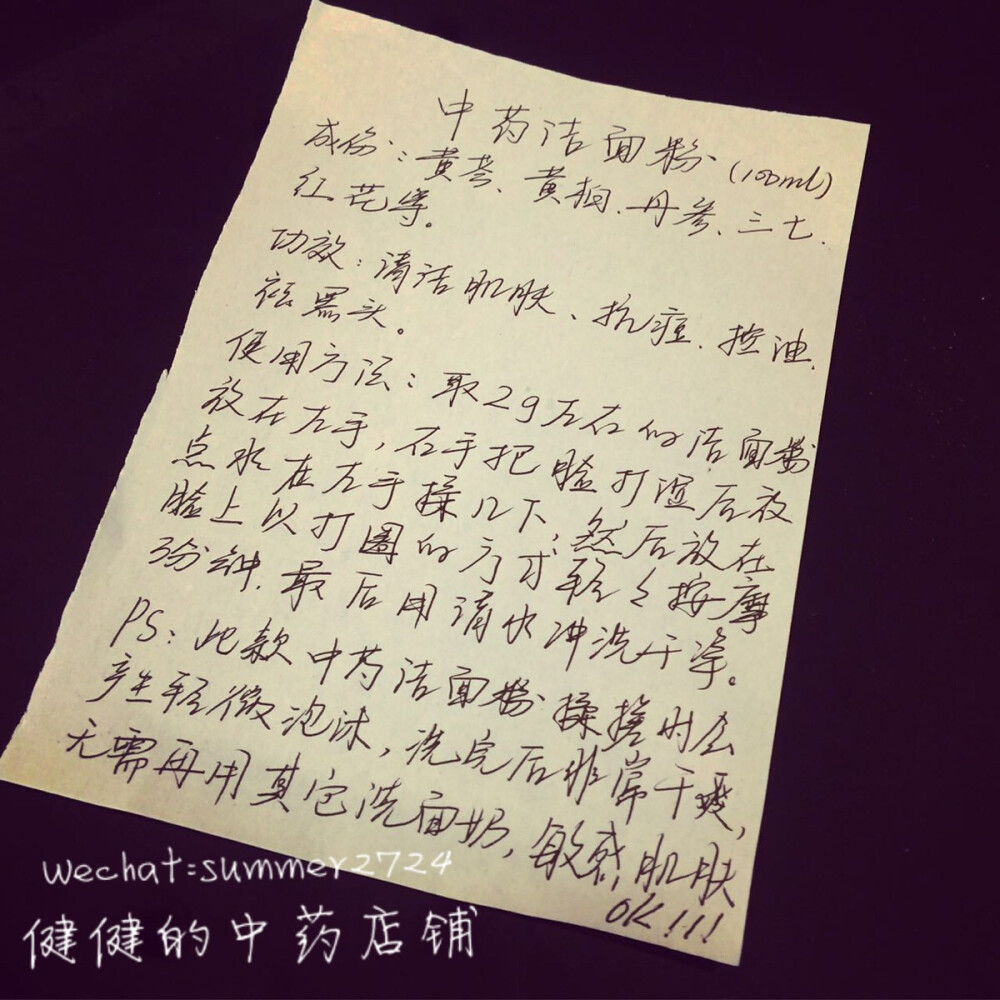 中药洁面粉(100ml)
成份:黄芩、黄柏、丹参、三七、
红花等。
功效:清洁肌肤、抗痘、控油、
祛黑头。
使用方法:取2g左右的洁面粉
放在左手,右手把脸打湿后放
点水在左手揉几下,然后放在
脸上以打圈的方式轻轻按摩
3分钟,最后用清水冲洗干净。
PS:此款中药洁面粉揉搓时会
产生轻微泡沫,洗完后非常干爽,
无需再用其它洗面奶,敏感肌肤
OK!!!
wechat:summer2724
健健的中药店铺